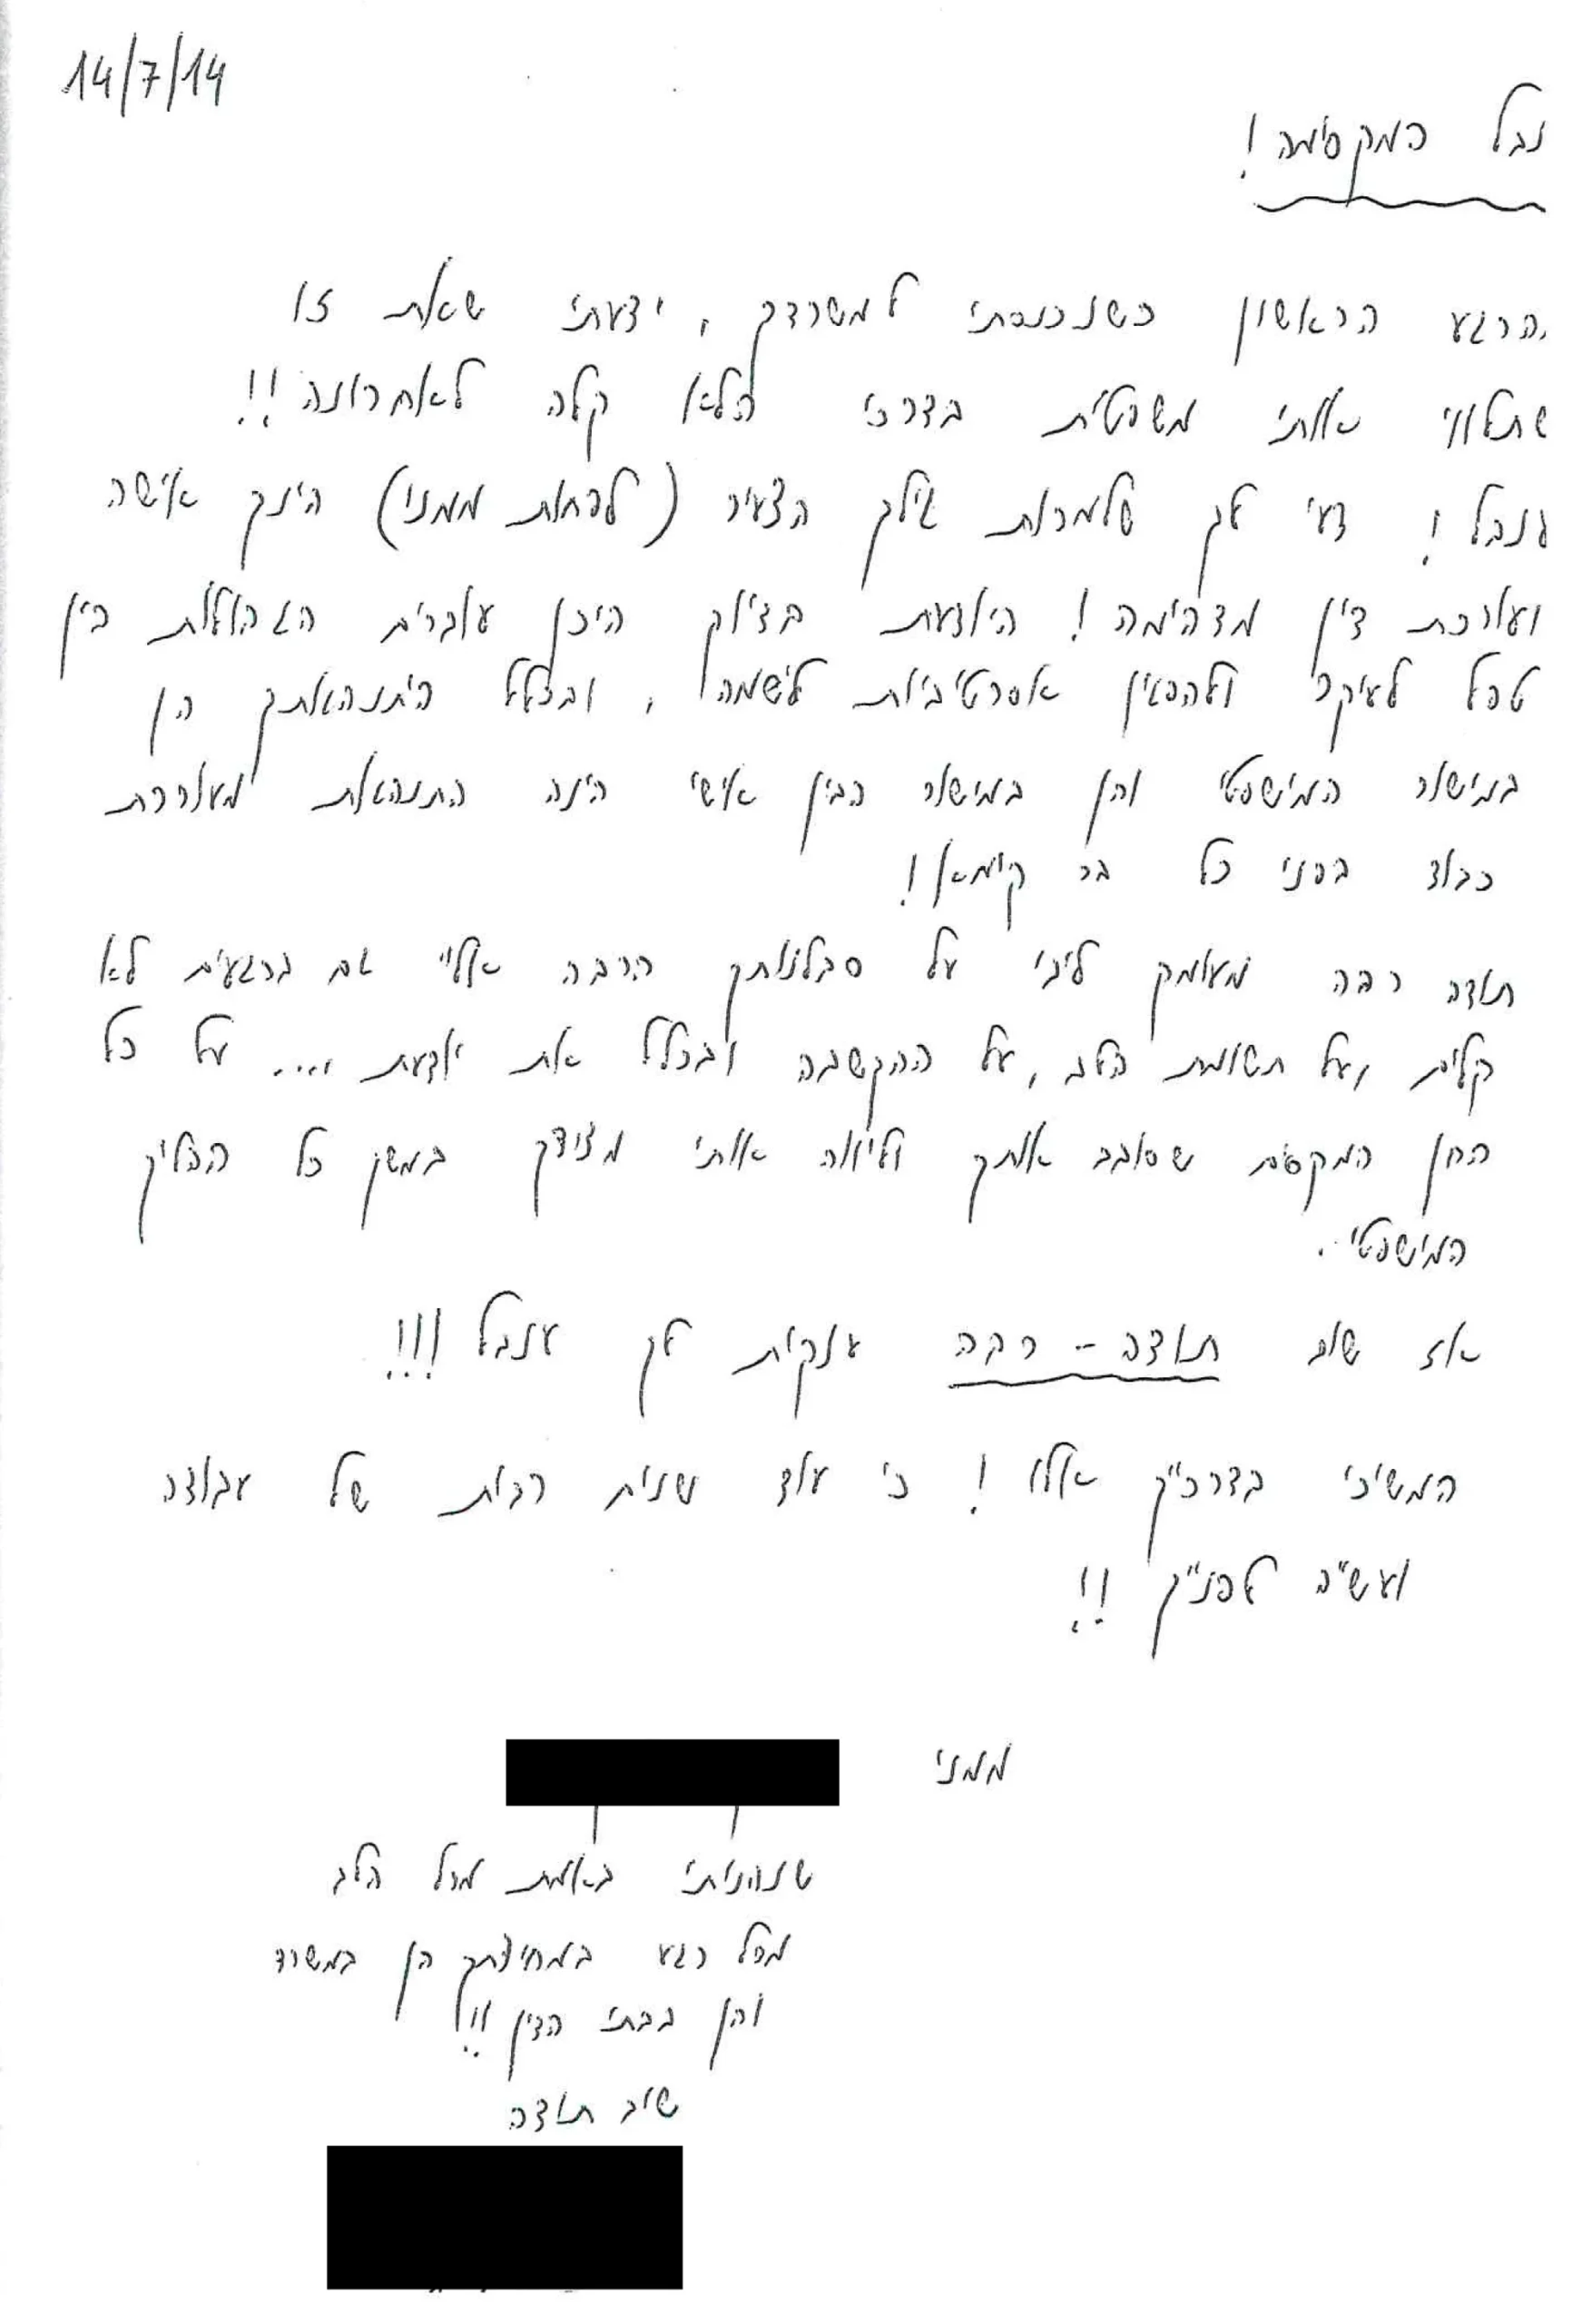 14/7/14
נבל המקסימה!
הרגע הראשון כשנכנסתי למשרדך, ידעתי שאת זו
שתלווי אותי משפטית בדרכי הלא קלה לאחרונה!!
ענבל! דעי לך שלמרות גילך הצעיר (לפחות ממני) הינך אישה
ועורכת דין מדהימה! היודעת בדיוק היכן עוברים הגבולות בין
טפל לעיקר ולהפגין אסרטיביות לשמה, ובכלל היתנהגותך הן
במישור המישפטי והן במישור הבין אישי הינה התנהגות מעוררת
כבוד בפני כל בר קיימא!
תודה רבה מעומק ליבי על סבלנותך הרבה אליי גם ברגעים לא
קלים, על תשומת הלב, על ההקשבה ובכלל את יודעת .... על כל
החן המקסים שסובב אותך וליווה אותי מצידך במשך כל ההליך
המישפטי.
אז שוב תודה - רבה ענקית לך ענבל!!!
המשיכי בדרכ"ך אלו! כי עוד שנים רבות של עבודה
ועש"ה לפנ"ך!!
ממני
שנהניתי באמת מכל הלב
מכל רגע במחיצתך הן במשרד
והן בבתי הדין!!
שוב תודה